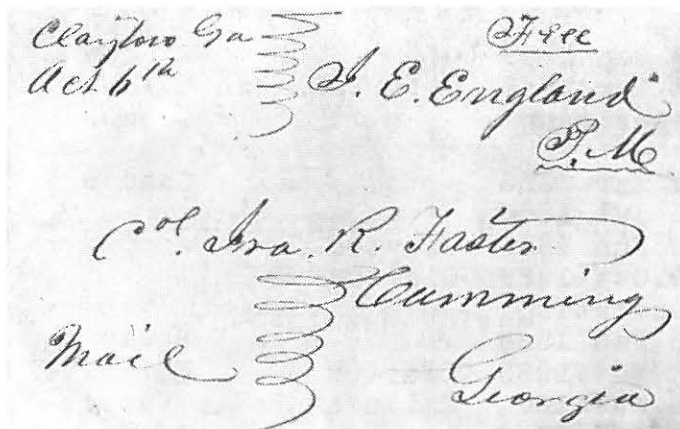 Clayton Ga
Oct 6th
Free
J. E. England
P. M
Col. Ira. R. Foster
Cumming
Mail
Georgia